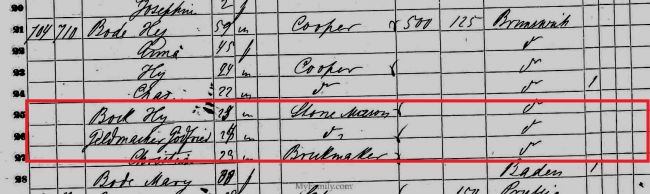 20 Josephine 2 f
21 704 710 Bode Hy 59 m Cooper 500 125 Brunswick
22 45 f do
23 Hy 24 m Cooper do
24 Chas 22 m do do 1
25 Bock Hy m Stone Mason do
26 Feldmacher Godfried 28 m do do
27 Christian 23 m Brickmaker do
28 Bode Mary f Baden 1
150 Prussia
MyFamily.com